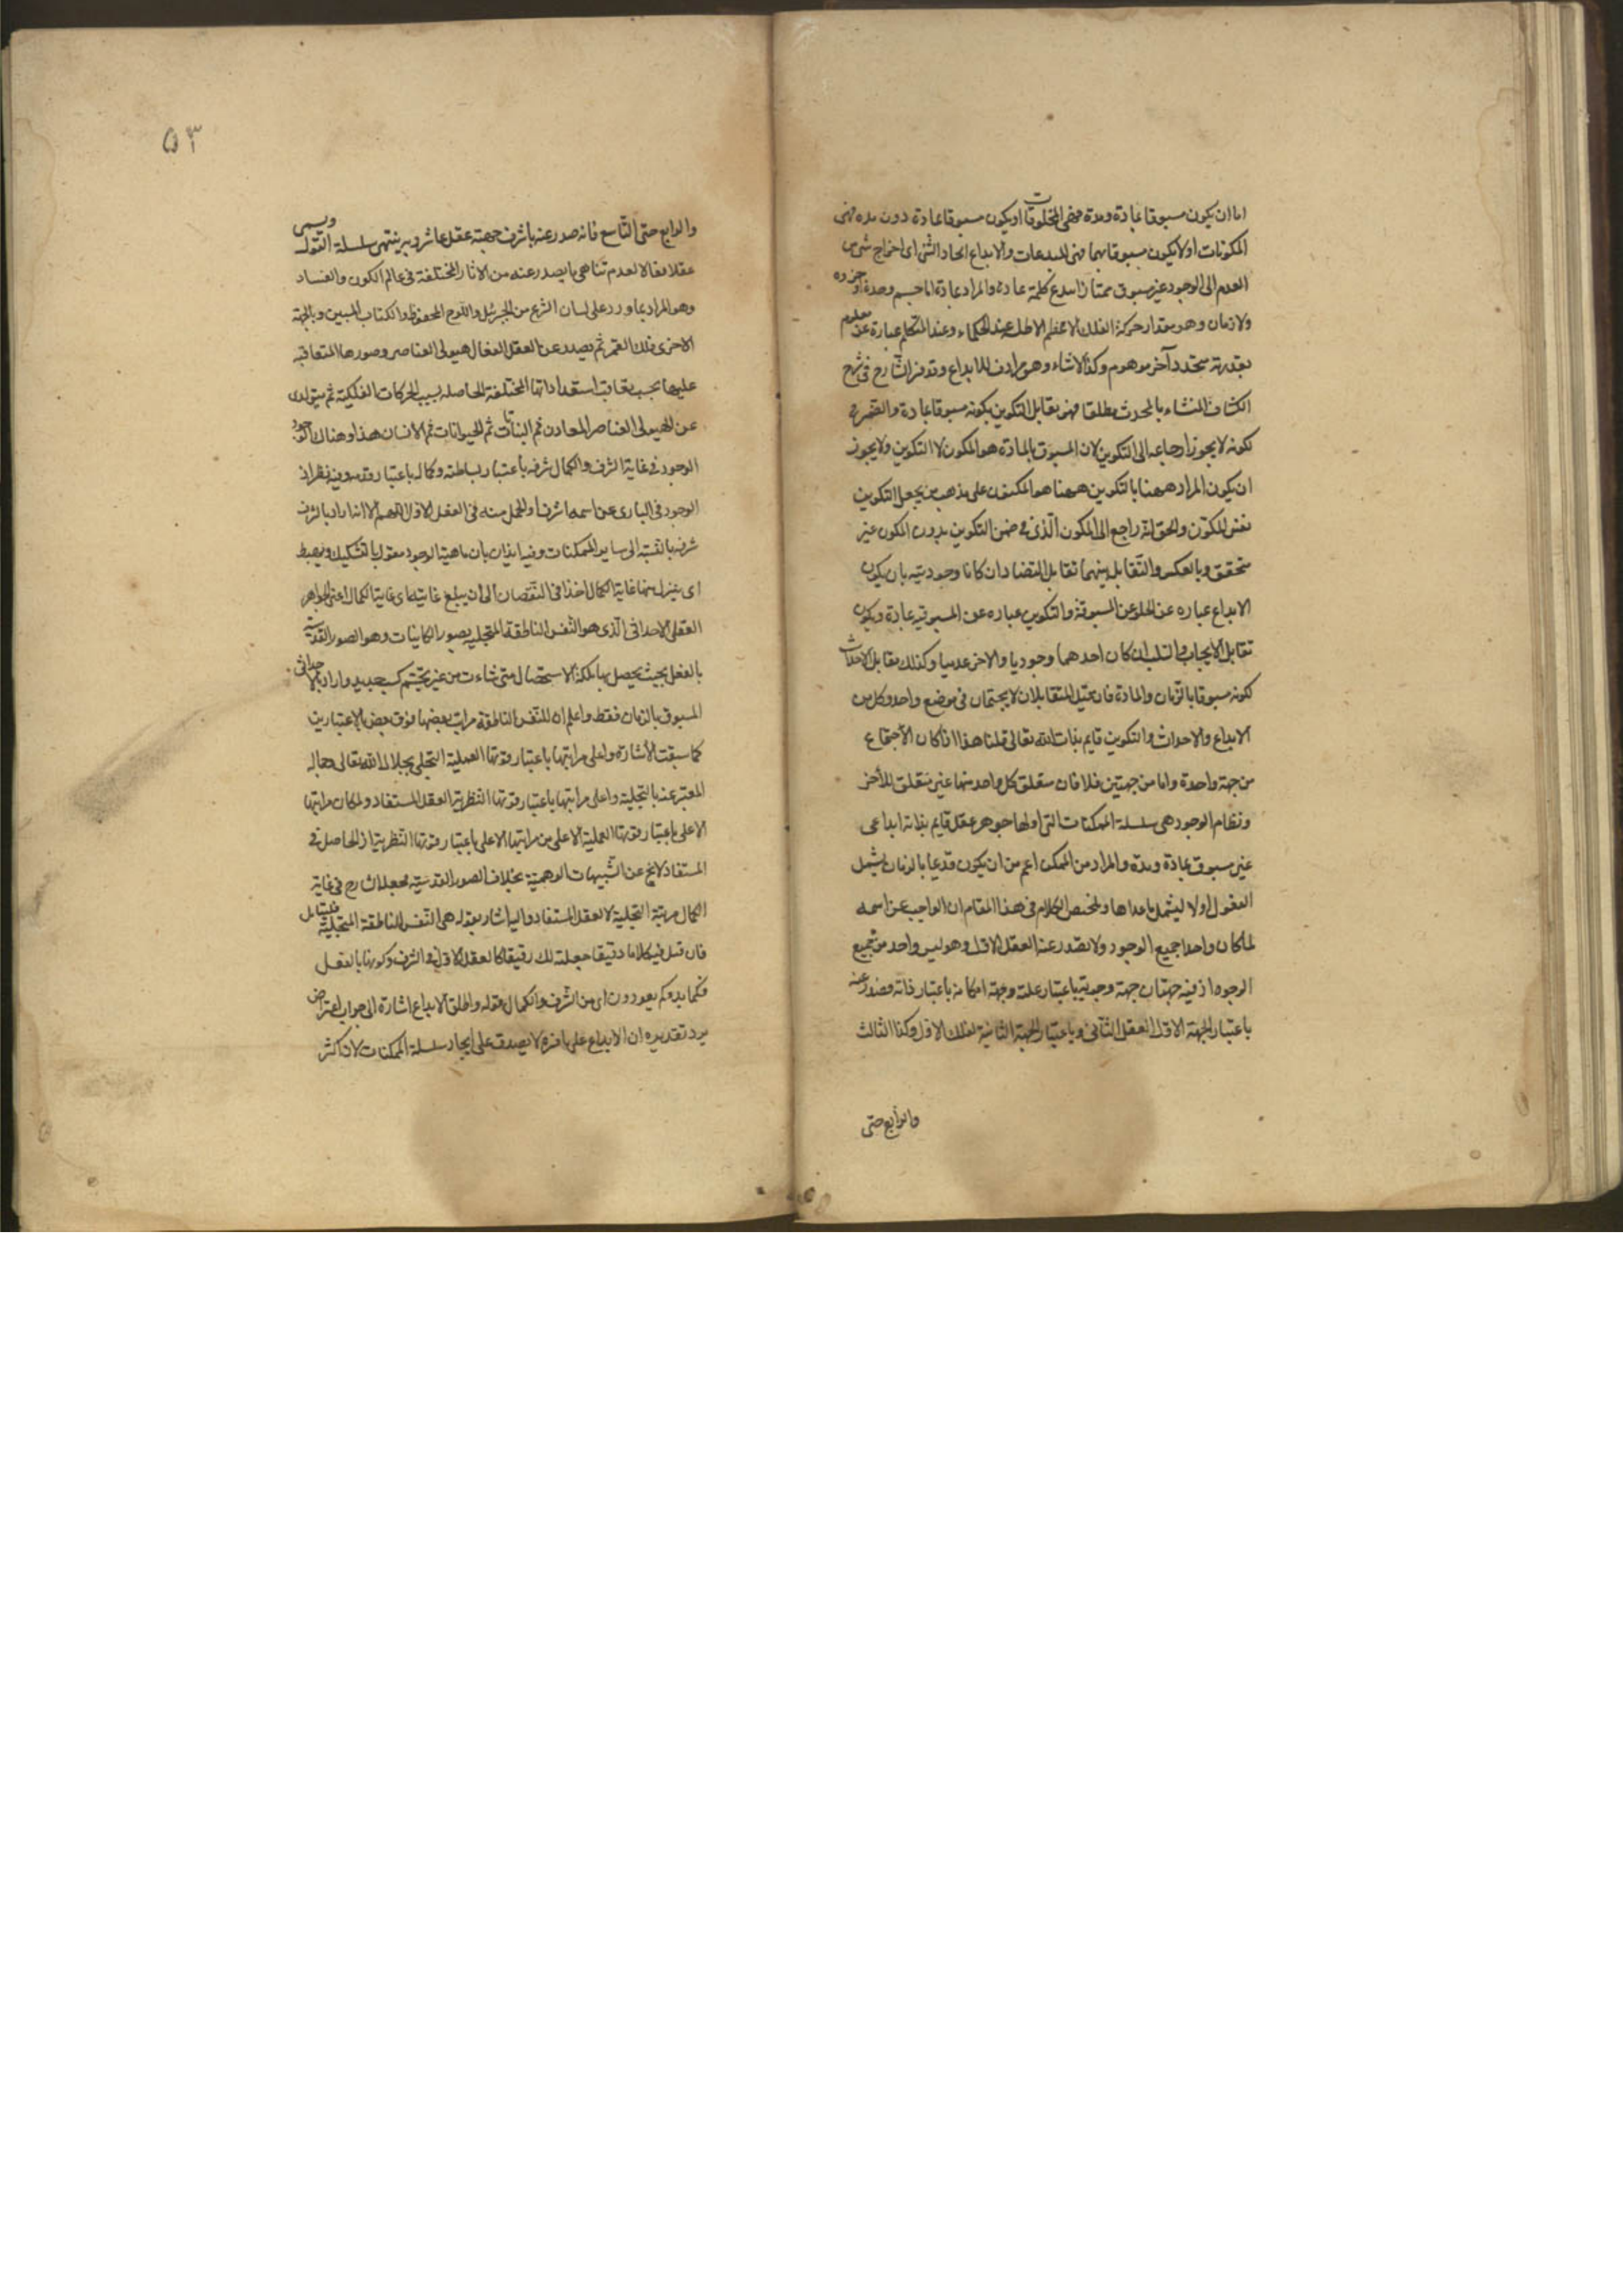 اما ان يكون مسبوقا بمادة ومدة فهى المخلوقات او يكون مسبوقا بمادة دون مده فهى
المكونات او لا يكون مسبوقا بهما فهى المبدعات والابداع ايجاد الشئ اى اخراج شئ من
العدم الى الوجود غير مسبوق بمادة والمراد بمادة اما جسم وحده او جزوه
ولا زمان وهو مقدار حركة الفلك الاعظم الاطلس عند الحكماء وعند المتكلم عبارة عن معلوم
يقدر به متجدد آخر موهوم وكذا الانشاء وهو مرادف للابداع وقد فسر الشارح فى شرح
الكشاف المنشاء بالمحدث مطلقا فهو يقابل التكوين بكونه مسبوقا بمادة والضمير فى
كونه لا يجوز ارجاعه الى التكوين لان المسبوق بالمادة هو المكون لا التكوين ولا يجوز
ان يكون المراد ههنا بالتكوين ههنا هو المكون على مذهب من يجعل التكوين
نفس المكون والحق انه راجع الى المكون الذى فى ضمن التكوين بدون المكون غير
متحقق وبالعكس والتقابل بينهما تقابل التضاد ان كانا وجوديين بان يكون
الابداع عباره عن الخلو عن المسبوقية والتكوين عباره عن المسبوقيه بمادة ويكون
تقابل الايجاب والسلب ان كان احدهما وجوديا والاخر عدميا وكذلك يقابل الاحداث
لكونه مسبوقا بالزمان والمادة فان قيل المتقابلان لا يجتمعان فى موضع واحد وكل من
الابداع والاحداث والتكوين قايم بذات الله تعالى قلنا هذا اذا كان الاجتماع
من جهة واحدة واما من جهتين فلا فان متعلق كل واحد منها غير متعلق للأخر
ونظام الوجود هى سلسلة الممكنات التى اولها جوهر عقل قايم بذاته ابداعى
غير مسبوق بمادة ومدة والمراد من الممكن اعم من ان يكون قديما بالزمان ليشمل
العقول او لا ليشمل ماعداها وملخص الكلام فى هذا المقام ان الواجب عز اسمه
لما كان واحدا جميع الوجود ولا يصدر عنه العقل الاول وهو ليس واحد من جميع
الوجوه اذ فيه جهتان جهة وجوبه باعتبار علته وجهة امكانه باعتبار ذاته فصدر عنه
باعتبار الجهة الاولى العقل الثانى وباعتبار الجهة الثانية الفلك الاول وكذا الثالث
والرابع حتى
٥٣
والرابع حتى التاسع فانه صدر عنه باشرف جهته عقل عاشر وبه ينتهى سلسلة العقول ويسمى
عقلا فعالا لعدم تناهى ما يصدر عنه من الاثار المختلفة فى عالم الكون والفساد
وهو المراد بما ورد على لسان الشرع من الجبرئيل واللوح المحفوظ والكتاب المبين وبالجهة
الاخرى فلك القمر ثم يصدر عن العقل الفعال هيولى العناصر وصورها المتعاقبة
عليها بحسب تعاقب استعداداتها المختلفة الحاصله بسبب الحركات الفلكية ثم يتولد
عن الهيولى العناصر المعادن ثم النباتات ثم الحيوانات ثم الانسان هذا وهناك
الوجود فى غاية الشرف والكمال شرفه باعتبار بساطته وكماله باعتبار قدمه وفيه نظر اذ
الوجود فى البارى عز اسمه اشرف واكمل منه فى العقل الاول اللهم الا ان اراد بالشرف
شرفه بالنسبة الى ساير الممكنات وفيه ايذان بان ماهية الوجود مقول بالتشكيك ويهبط
اى ينزل منها غاية الكمال اخذا فى النقصان الى ان يبلغ غايته اى غاية الكمال اعنى الجواهر
العقلى الاحداثى الذى هو النفس الناطقة المتجليه بصور الكاينات وهو الصور القدسية
بالفعل بحيث يحصل بها ملكة الاستحضال متى شاءت من غير تجشم كسب جديد واراد بالاحداثى
المسبوق بالزمان فقط واعلم ان للنفس الناطقة مراتب بعضها فوق بعض بالاعتبارين
كما سبقت الأشارة واعلى مراتبها باعتبار قوتها العملية التجلى بجلال الله تعالى وجماله
المعبر عنه بالتجلية واعلى مراتبها باعتبار قوتها النظرية العقل المستفاد ولما كان مراتبها
الاعلى باعتبار قوتها العملية الاعلى من مراتبها الاعلى باعتبار قوتها النظرية اذ الحاصل فى
المستفاد لا يخ عن الشبهات الوهمية بخلاف الصور القدسية فجعل الشارح فى غاية
الكمال مرتبة التجلية لا العقل المستفاد واليه اشار بقوله هى النفس الناطقة المتجلية فليتامل
فان قيل فيه كلاما دقيقا جعلته لك رقيقا كالعقل الاول فى الشرف وكونها بالفعل
فكما بدءكم يعودون اى من الشرف والكمال قوله واطلق الابداع اشارة الى جواب اعتراض
يرد تقديره ان الابداع على ما فسره لا يصدق على ايجاد سلسلة الممكنات لان اكثر